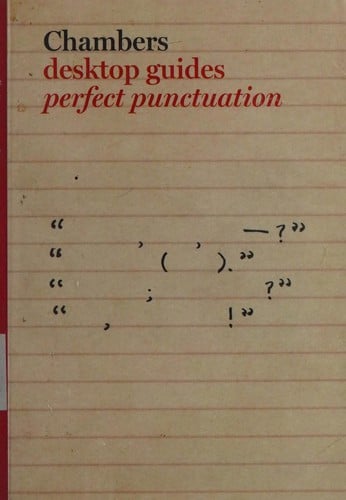 Chambers
desktop guides
perfect punctuation
“ , , —?”
“ ( ).”
“ ; ?”
“ , !”